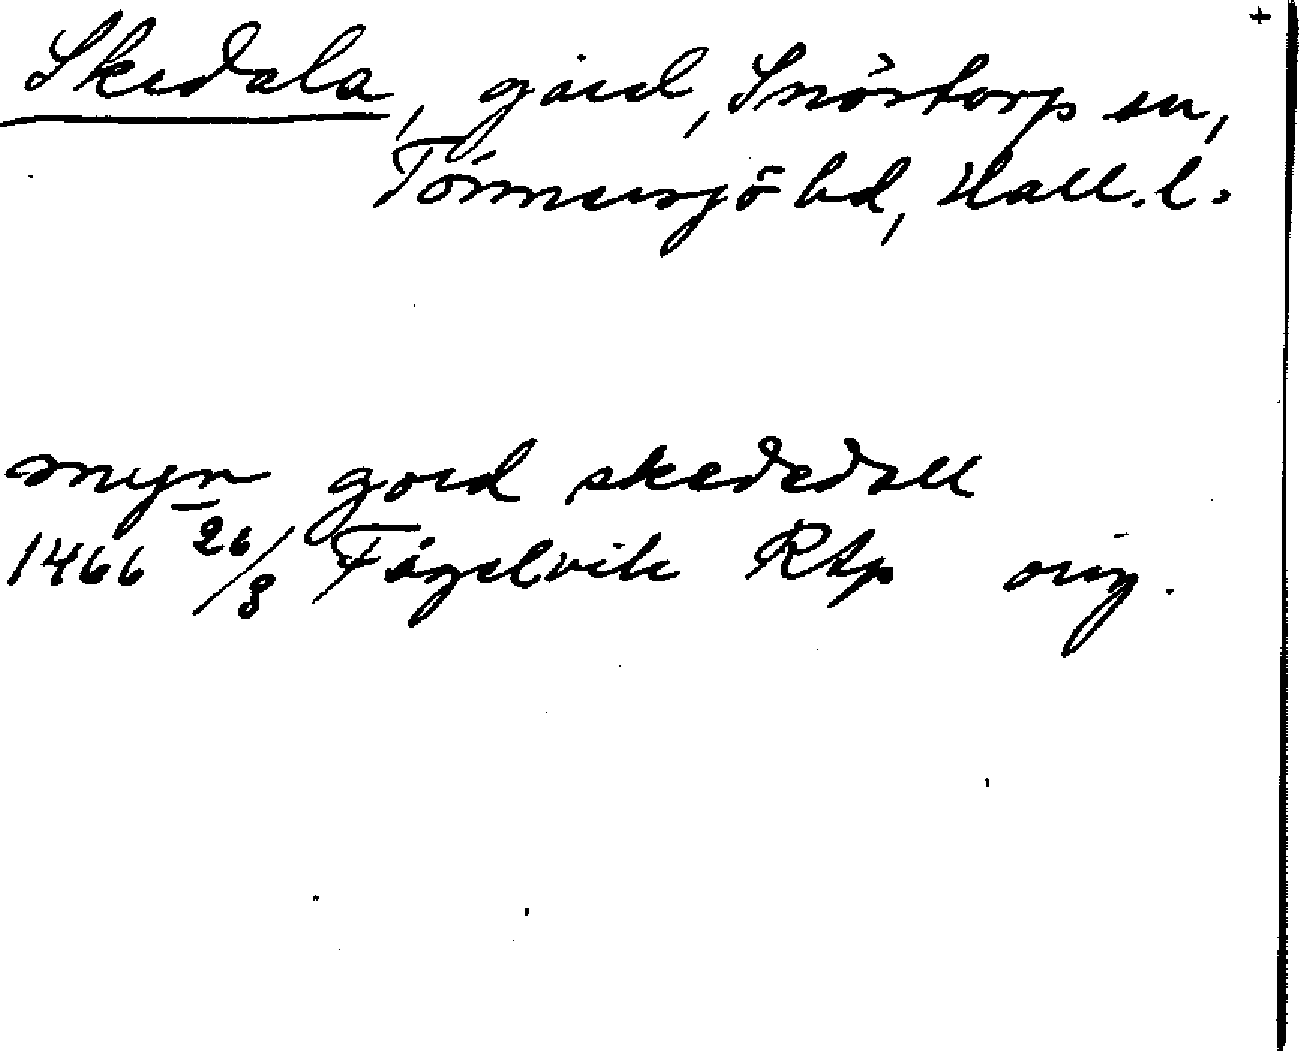 +
Skedala, gård, Snöstorp sn,
Tönnersjö hd, Hall. l.
myn gord skededall
1466 26/8 Fågelvik Rtp orig.